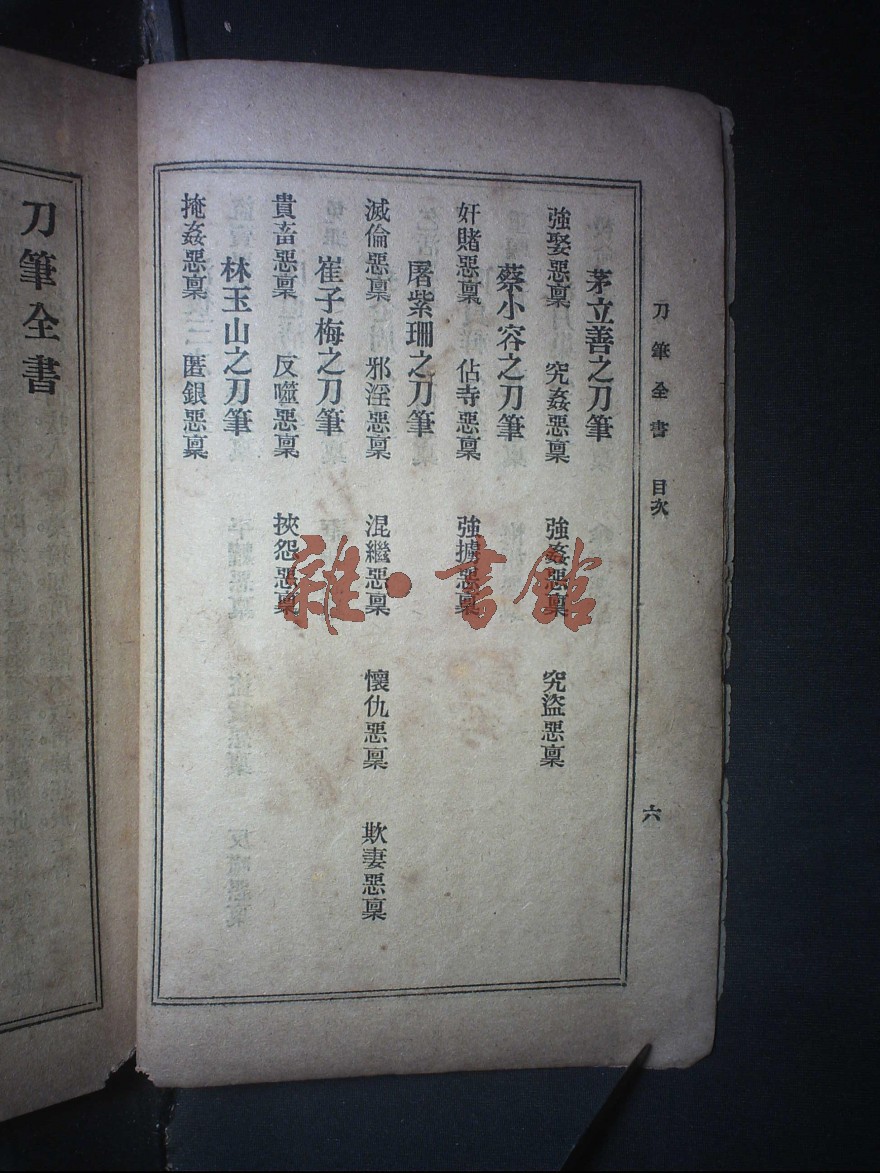 刀筆全書　目次　六
茅立善之刀筆
強娶惡稟　究姦惡稟　強姦惡稟　究盜惡稟
蔡小容之刀筆
奸賭惡稟　佔寺惡稟　強擄惡稟
屠紫珊之刀筆
滅倫惡稟　邪淫惡稟　混繼惡稟　懷仇惡稟　欺妻惡稟
崔子梅之刀筆
貴畜惡稟　反噬惡稟　挾怨惡稟
林玉山之刀筆
掩姦惡稟　匿銀惡稟
刀筆全書
雜·書館